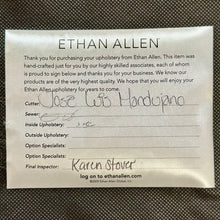 ETHAN ALLEN®
Thank you for purchasing your upholstery from Ethan Allen. This item was
hand-crafted just for you by our highly skilled associates, each of
whom is proud to sign below and thanks you for your business. We know our
products are of the very highest quality. We hope you will enjoy your
Ethan Allen upholstery for years to come.
Cutter: José Luis Mandujano
Sewer:
Inside Upholstery:
Outside Upholstery:
Option Specialists:
Option Specialists:
Final Inspector: Karen Stover
log on to ethanallen.com